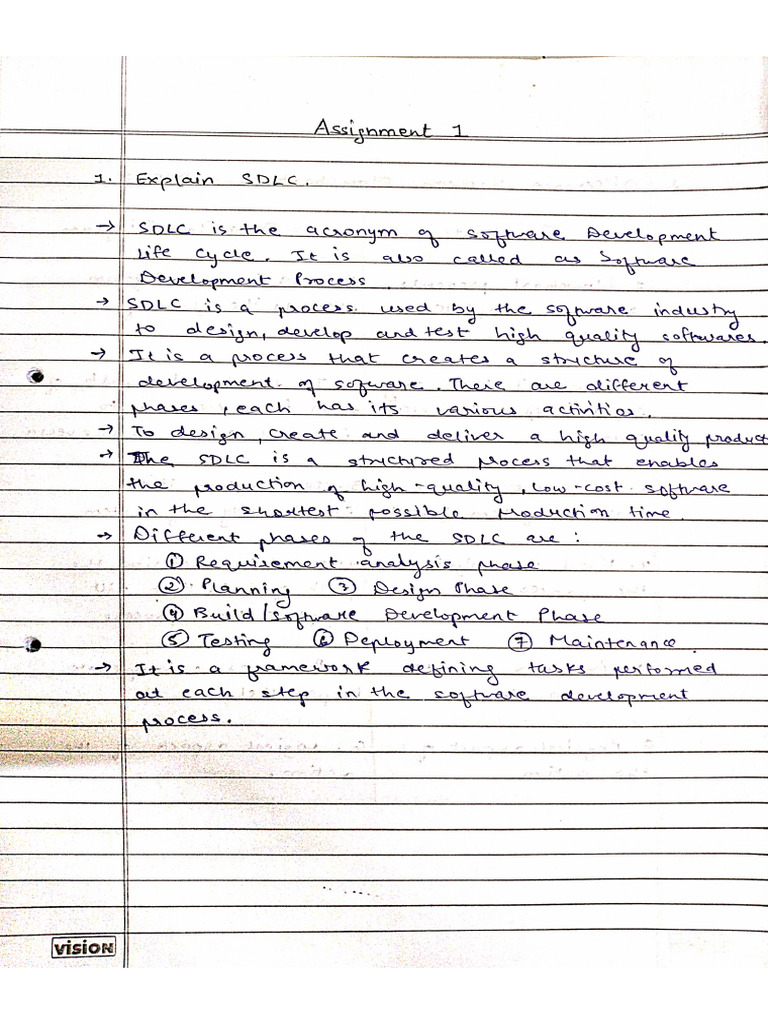 Assignment 1
1. Explain SDLC.
→ SDLC is the acronym of Software Development
Life Cycle. It is also called as Software
Development Process.
→ SDLC is a process used by the software industry
to design, develop and test high quality softwares.
→ It is a process that creates a structure of
development of software. There are different
phases, each has its various activities.
→ To design, create and deliver a high quality product
→ The SDLC is a structured process that enables
the production of high-quality, low-cost software
in the shortest possible production time.
→ Different phases of the SDLC are :
① Requirement analysis phase
② Planning ③ Design Phase
④ Build/software Development Phase
⑤ Testing ⑥ Deployment ⑦ Maintenance.
→ It is a framework defining tasks performed
at each step in the software development
process.
vision